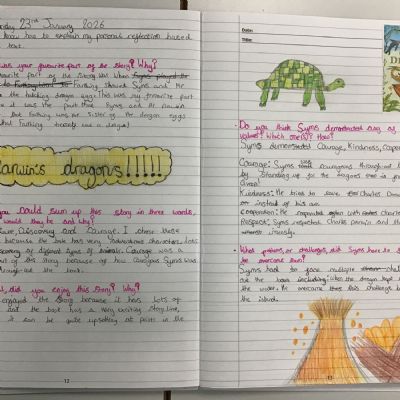 23rd January 2026
know how to explain my personal reflection based
text.
was your favourite part of the story? Why?
favourite part of the story was when
Farthing showed Syms and Mr
the hatching dragon eggs. This was my favourite part
it was the part that Syms and Mr Darwin
that Farthing was the sister of the dragon eggs
that Farthing
Darwin's dragons!!!!!
you could sum up this story in three words,
would they be and why?
Discovery and Courage. I chose these
because the book has very adventurous characters, lots
discovery of different types of animals. Courage was a
part of this story because of how courageous Syms was
throughout the book.
did you enjoy this story? Why?
enjoyed the story because it has lots of
and the book has a very exciting storyline,
it can be quite upsetting at points in the
12
Date:
Title:
Do you think Syms demonstrated any of
values? Which one(s)? How?
Syms demonstrated Courage, Kindness,
Courage: Syms courageous throughout
by standing up for the dragons
Kindness: He tries to save Charles
instead of his own
Cooperation: He cooperated with Charles
Respect: Syms respected Charles Darwin and the
What problems, or challenges, did Syms have to
be overcome them?
Syms had to face multiple
the book including: when the dragon kept
the water. He overcame this challenge
the island.
13